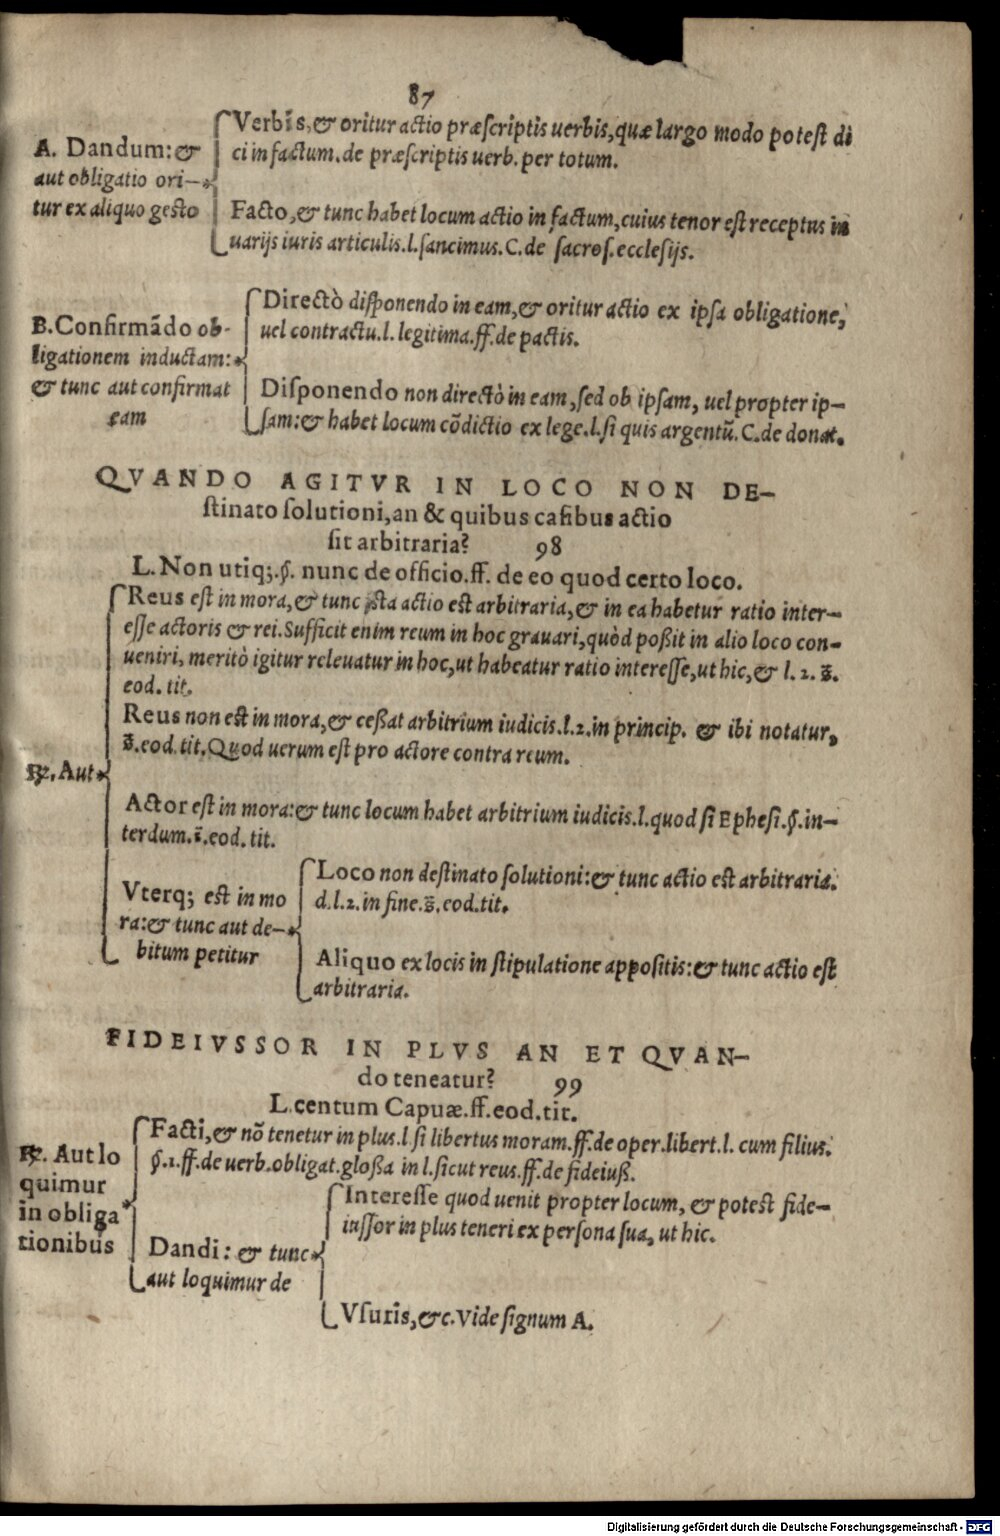 87
A. Dandum: &
aut obligatio ori-
tur ex aliquo gesto
Verbis, & oritur actio præscriptis uerbis, quæ largo modo potest di
ci in factum. de præscriptis uerb. per totum.
Facto, & tunc habet locum actio in factum, cuius tenor est receptus in
uarijs iuris articulis. l. sancimus. C. de sacros. ecclesijs.
B. Confirmãdo ob-
ligationem inductam:
& tunc aut confirmat
eam
Directò disponendo in eam, & oritur actio ex ipsa obligatione,
uel contractu. l. legitima. ff. de pactis.
Disponendo non directò in eam, sed ob ipsam, uel propter ip-
sam: & habet locum cõdictio ex lege. l. si quis argentũ. C. de donat.
QVANDO AGITVR IN LOCO NON DE-
stinato solutioni, an & quibus casibus actio
sit arbitraria? 98
L. Non utiq;. §. nunc de officio. ff. de eo quod certo loco.
℞. Aut
Reus est in mora, & tunc ista actio est arbitraria, & in ea habetur ratio inter-
esse actoris & rei. Sufficit enim reum in hoc grauari, quòd poßit in alio loco con-
ueniri, meritò igitur releuatur in hoc, ut habeatur ratio interesse, ut hic, & l. 2. s̃.
eod. tit.
Reus non est in mora, & ceßat arbitrium iudicis. l. 2. in princip. & ibi notatur,
s̃. eod. tit. Quod uerum est pro actore contra reum.
Actor est in mora: & tunc locum habet arbitrium iudicis. l. quod si Ephesi. §. in-
terdum. ĩ. eod. tit.
Vterq; est in mo
ra: & tunc aut de-
bitum petitur
Loco non destinato solutioni: & tunc actio est arbitraria.
d. l. 2. in fine. s̃. eod. tit.
Aliquo ex locis in stipulatione appositis: & tunc actio est
arbitraria.
FIDEIVSSOR IN PLVS AN ET QVAN-
do teneatur? 99
L. centum Capuæ. ff. eod. tit.
℞. Aut lo
quimur
in obliga
tionibus
Facti, & nõ tenetur in plus. l. si libertus moram. ff. de oper. libert. l. cum filius.
§. 1. ff. de uerb. obligat. gloßa in l. sicut reus. ff. de fideiuß.
Dandi: & tunc
aut loquimur de
Interesse quod uenit propter locum, & potest fide-
iussor in plus teneri ex persona sua, ut hic.
Vsuris, &c. Vide signum A.
Digitalisierung gefördert durch die Deutsche Forschungsgemeinschaft - DFG